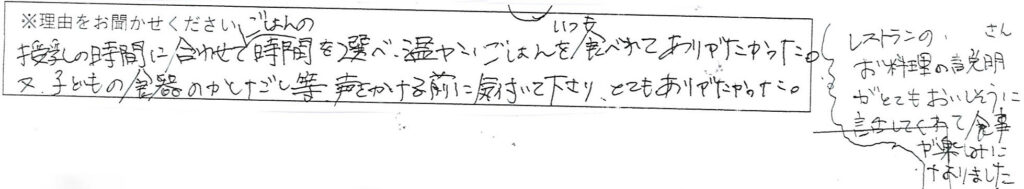 ※理由をお聞かせください
授乳の時間に合わせてごはんの時間を選べ、温かいごはんをいつも食べれてありがたかった。
又、子どもの食器のかたずけ等、声をかける前に気付いて下さり、とてもありがたかった。
レストランの さん
お料理の説明
がとてもおいしそうに
話してくれて食事
が楽しみに
なりました